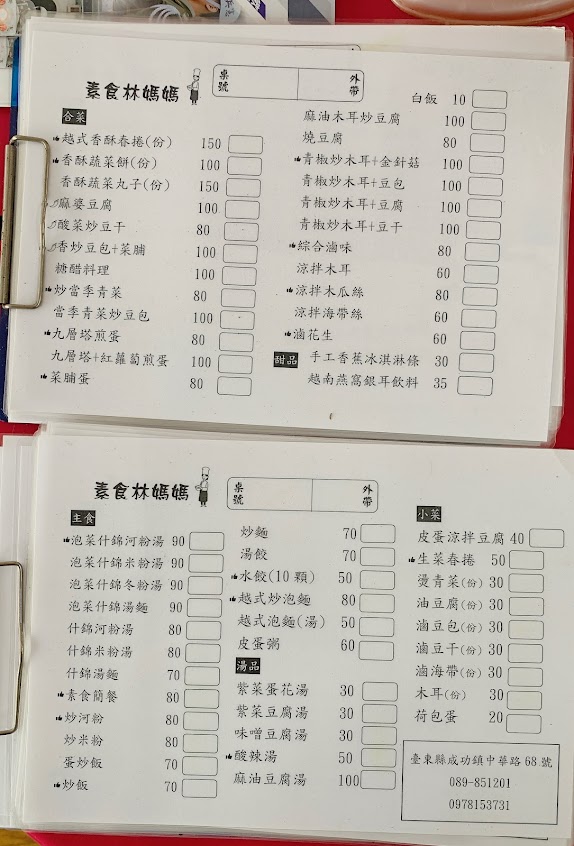 素食林媽媽
桌號 外帶
合菜
越式香酥春捲(份) 150
香酥蔬菜餅(份) 100
香酥蔬菜丸子(份) 150
麻婆豆腐 100
酸菜炒豆干 80
香炒豆包+菜脯 100
糖醋料理 100
炒當季青菜 80
當季青菜炒豆包 100
九層塔煎蛋 80
九層塔+紅蘿蔔煎蛋 100
菜脯蛋 80
白飯 10
麻油木耳炒豆腐 100
燒豆腐 80
青椒炒木耳+金針菇 100
青椒炒木耳+豆包 100
青椒炒木耳+豆腐 100
青椒炒木耳+豆干 100
綜合滷味 80
涼拌木耳 60
涼拌木瓜絲 80
涼拌海帶絲 60
滷花生 60
甜品
手工香蕉冰淇淋條 30
越南燕窩銀耳飲料 35
素食林媽媽
桌號 外帶
主食
泡菜什錦河粉湯 90
泡菜什錦米粉湯 90
泡菜什錦冬粉湯 90
泡菜什錦湯麵 90
什錦河粉湯 80
什錦米粉湯 80
什錦湯麵 70
素食簡餐 80
炒河粉 80
炒米粉 80
蛋炒飯 70
炒飯 70
炒麵 70
湯餃 70
水餃(10顆) 50
越式炒泡麵 80
越式泡麵(湯) 50
皮蛋粥 60
湯品
紫菜蛋花湯 30
紫菜豆腐湯 30
味噌豆腐湯 30
酸辣湯 50
麻油豆腐湯 100
小菜
皮蛋涼拌豆腐 40
生菜春捲 50
燙青菜(份) 30
油豆腐(份) 30
滷豆包(份) 30
滷豆干(份) 30
滷海帶(份) 30
木耳(份) 30
荷包蛋 20
臺東縣成功鎮中華路68號
089-851201
0978153731